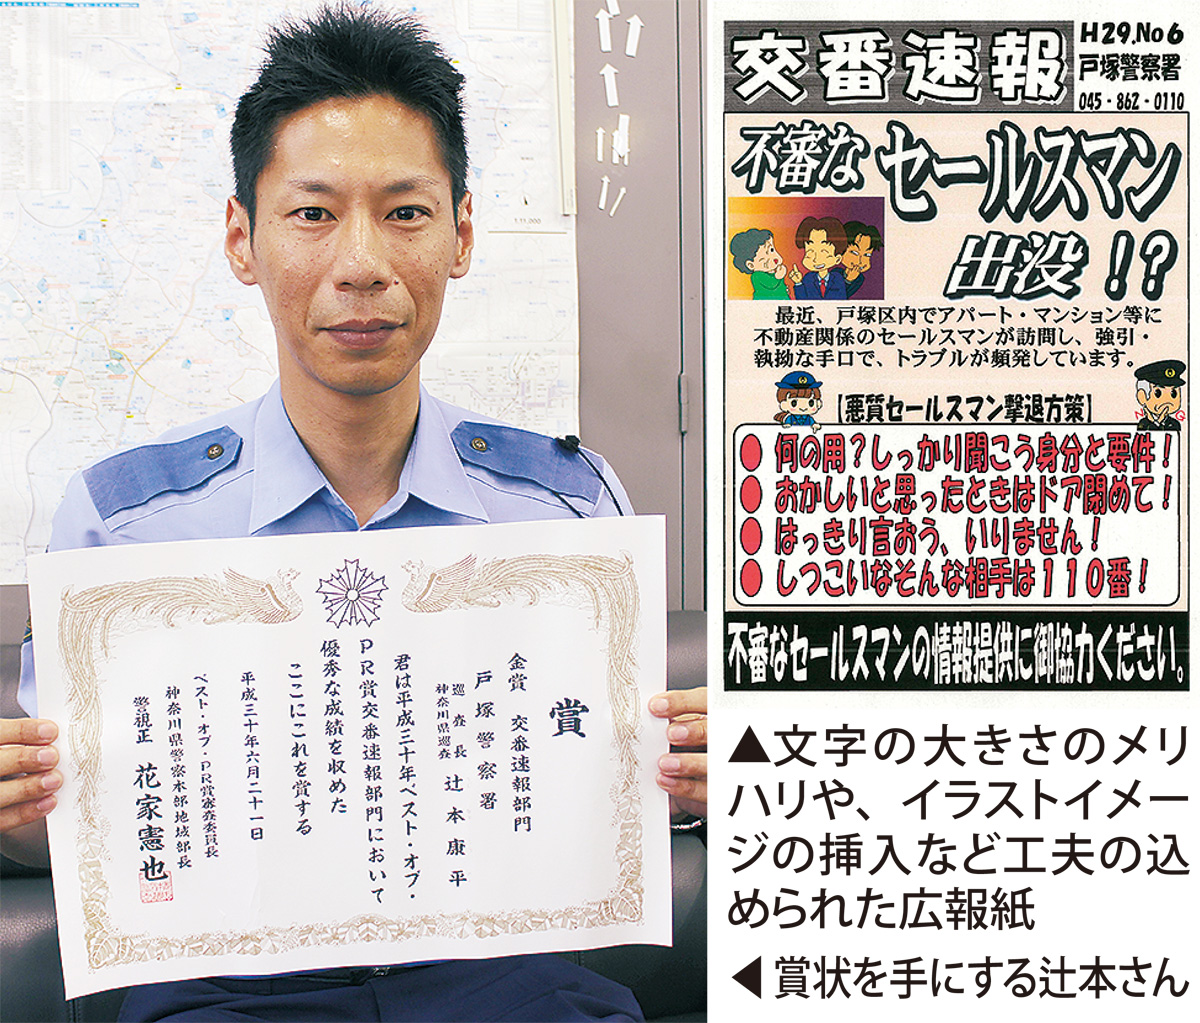 1:11,000
賞
金賞 交番速報部門
戸塚警察署
神奈川県巡査
巡査長 辻本康平
君は平成三十年ベスト・オブ・
PR賞交番速報部門において
優秀な成績を収めた
ここにこれを賞する
平成三十年六月二十一日
ベスト・オブ・PR賞審査委員長
神奈川県警察本部地域部長
警視正 花家憲也
交番速報
H29.No6
戸塚警察署
045-862-0110
不審な セールスマン
出没!?
最近、戸塚区内でアパート・マンション等に
不動産関係のセールスマンが訪問し、強引・
執拗な手口で、トラブルが頻発しています。
【悪質セールスマン撃退方策】
NO
● 何の用?しっかり聞こう身分と要件!
● おかしいと思ったときはドア閉めて!
● はっきり言おう、いりません!
● しつこいなそんな相手は110番!
不審なセールスマンの情報提供に御協力ください。
▲文字の大きさのメリ
ハリや、イラストイメー
ジの挿入など工夫の込
められた広報紙
◀賞状を手にする辻本さん